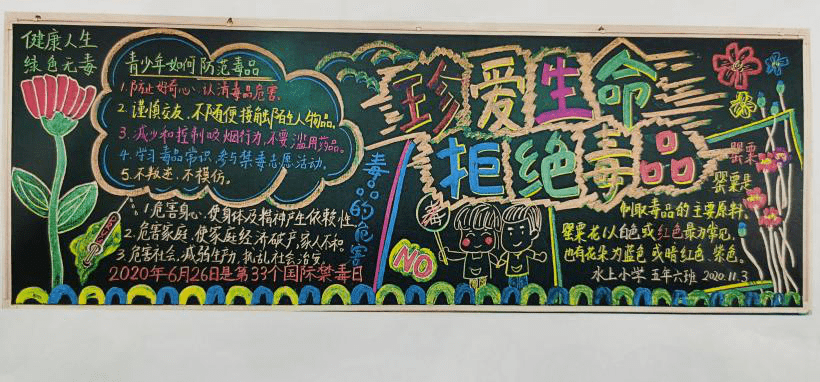 健康人生
绿色无毒
青少年如何防范毒品
1.防止好奇心、认清毒品危害。
2.谨慎交友,不随便接触陌生人物品。
3.减少和控制吸烟行为,不要滥用药品。
4.学习毒品常识,参与禁毒志愿活动。
5.不叛逆、不模仿。
毒品的危害
1.危害身心、使身体及精神产生依赖性
2.危害家庭、使家庭经济破产,家人不和。
3.危害社会、减弱生产力,扰乱社会治安。
2020年6月26日是第33个国际禁毒日
珍爱生命
拒绝毒品
毒
NO
罂粟
罂粟是
制取毒品的主要原料、
罂粟花以白色或红色最为常见,
也有花朵为蓝色或暗红色、紫色。
水上小学 五年六班 2020.11.3